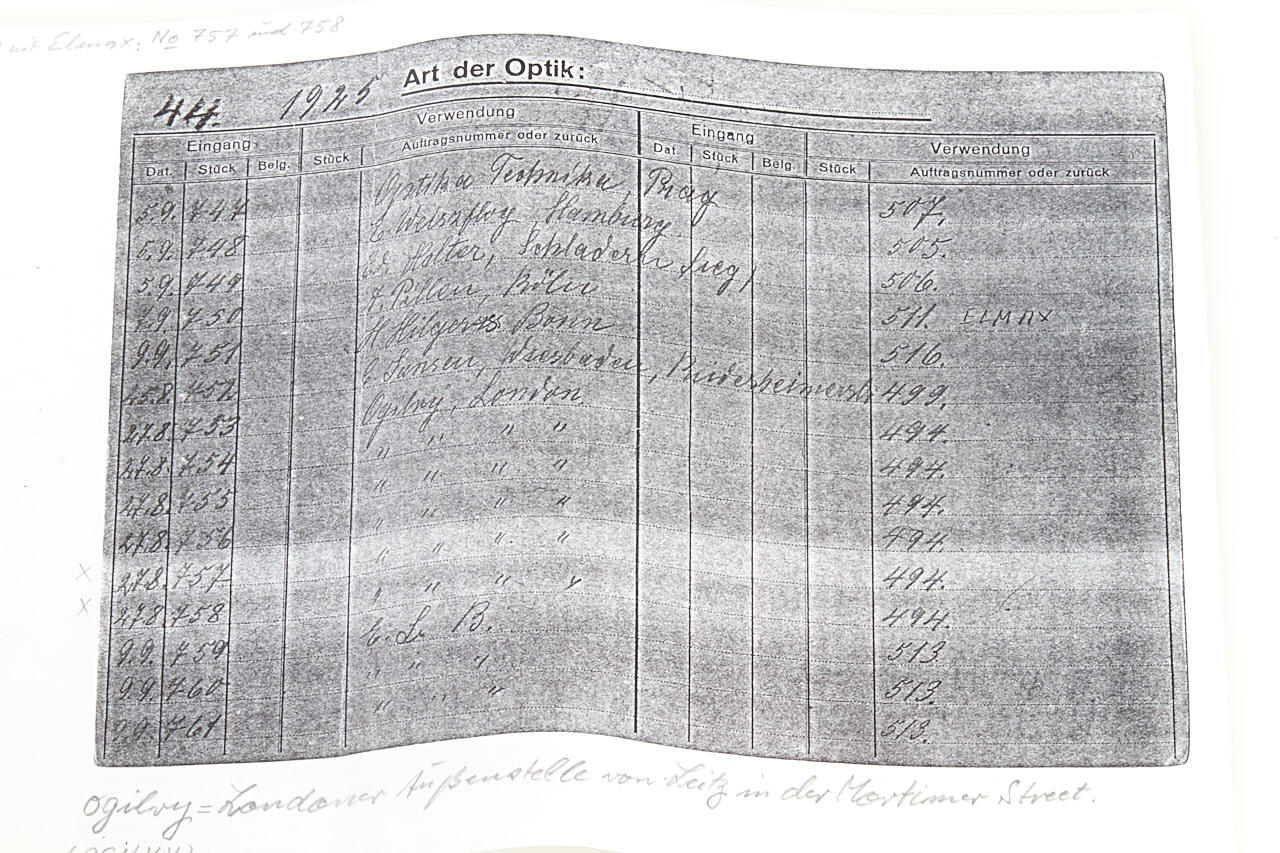 mit Elmax: No 757 und 758
44. 1925 Art der Optik:
Eingang Verwendung Eingang Verwendung
Dat. Stück Belg. Stück Auftragsnummer oder zurück Dat. Stück Belg. Stück Auftragsnummer oder zurück
5.9. 747 Optika Technika, Prag 507.
5.9. 748 E. Weiszflog Hamburg. 505.
5.9. 749 Holter, Schladern Sieg) 506.
7.9. 750 Köln 511. ELMAX
9.9. 751 H Hilgers Bonn 516.
25.8. 752 C Jansen, Wiesbaden, 499.
27.8. 753 Ogilvy, London 494.
27.8. 754 " " " " 494.
27.8. 755 " " " " 494.
27.8. 756 " " " " 494.
x 27.8. 757 " " " " 494.
x 27.8. 758 " " " " 494.
9.9. 759 E. L. B. 513.
9.9. 760 " " " 513.
9.9. 761 " " " 513.
Ogilvy = Londoner Außenstelle von Leitz in der Mortimer Street.